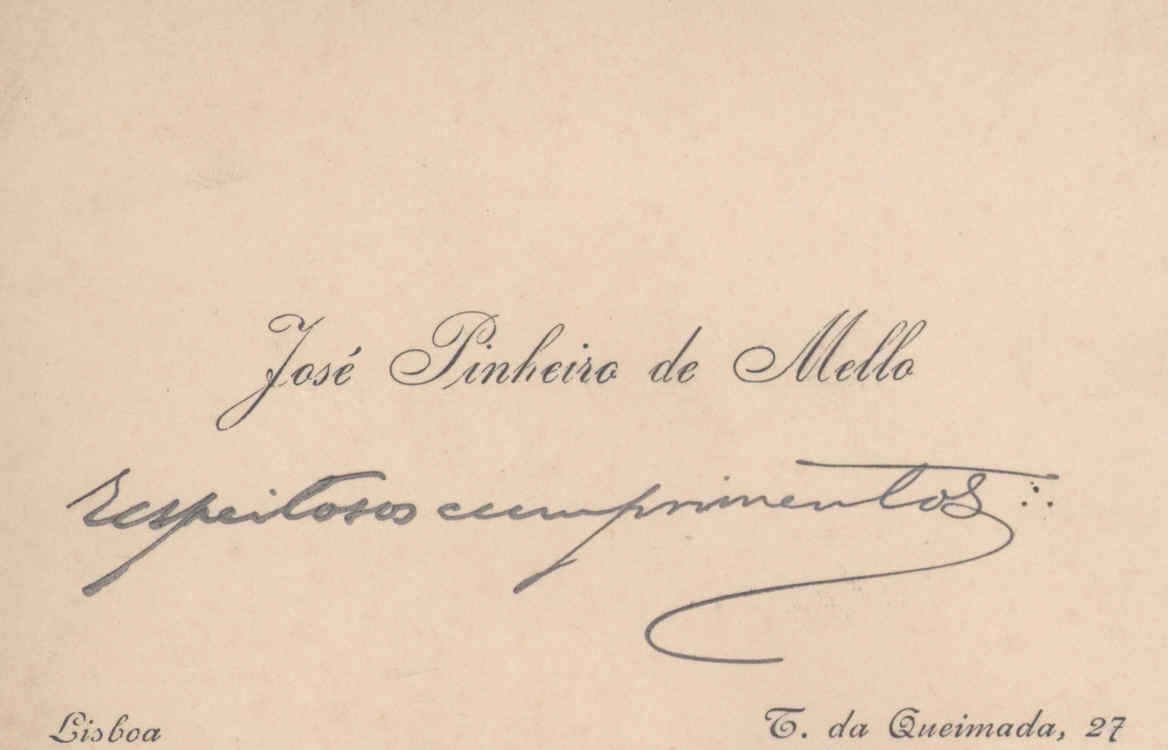 José Pinheiro de Mello
respeitosos cumprimentos ∴
Lisboa
T. da Queimada, 27